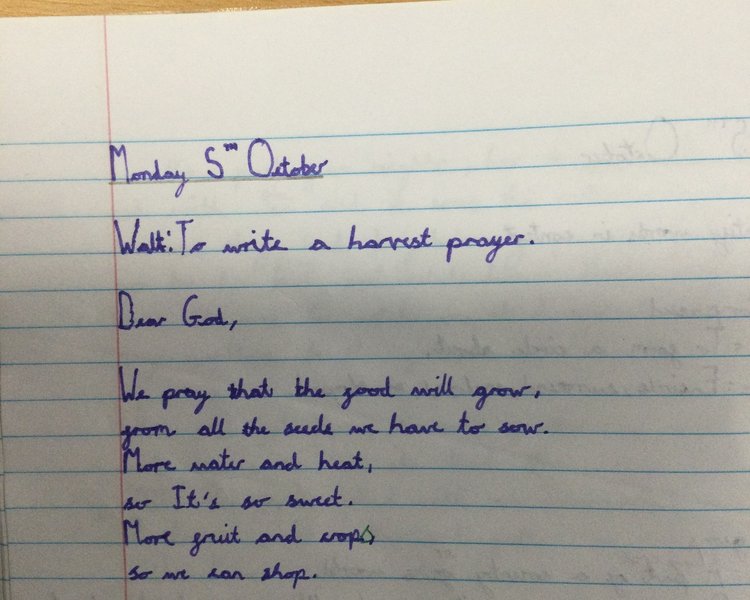 Monday 5th October
Walt: To write a harvest prayer.
Dear God,
We pray that the food will grow,
from all the seeds we have to sow.
More water and heat,
so It's so sweet.
More fruit and crops,
so we can shop.